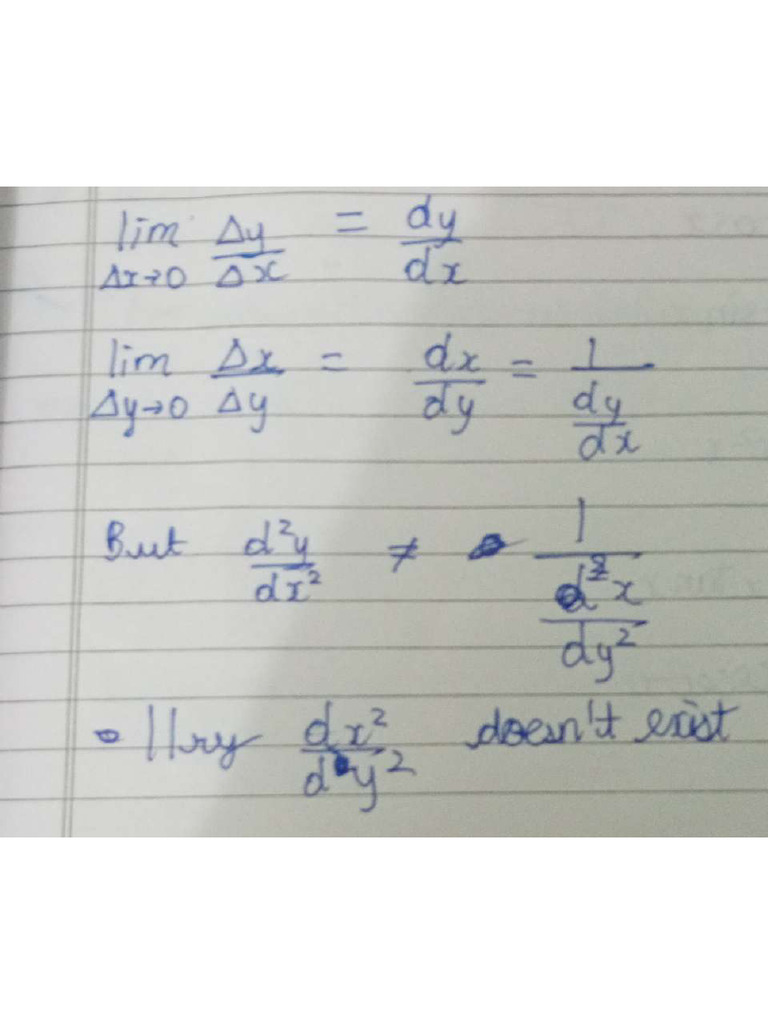 lim Δx→0 Δy/Δx = dy/dx
lim Δy→0 Δx/Δy = dx/dy = 1/(dy/dx)
But d²y/dx² ≠ 1/(d²x/dy²)
||ry dx²/dy² doesn't exist